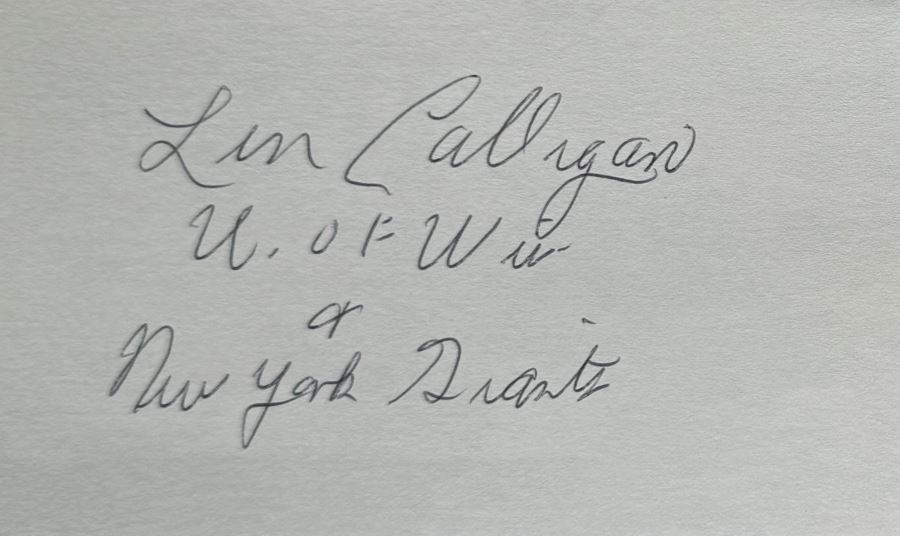 Len Calligan
U. of Wis
&
New York Giants